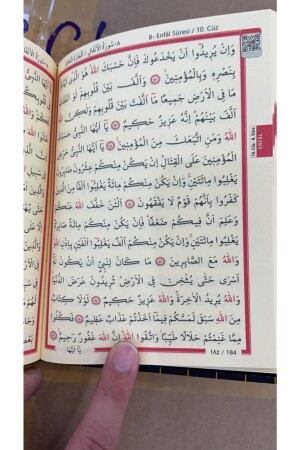 ٨-سُورَةُ الْأَنْفَالِ / الْجُزْءُ الْعَاشِرُ
8- Enfâl Sûresi / 10. Cüz
وَاِنْ يُرِيدُٓوا اَنْ يَخْدَعُوكَ فَاِنَّ حَسْبَكَ اللّٰهُ هُوَ الَّذ۪ٓي اَيَّدَكَ
بِنَصْرِه۪ وَبِالْمُؤْمِن۪ينَ ﴿٦٢﴾ وَاَلَّفَ بَيْنَ قُلُوبِهِمْ لَوْ اَنْفَقْتَ
مَا فِي الْاَرْضِ جَم۪يعًا مَٓا اَلَّفْتَ بَيْنَ قُلُوبِهِمْ وَلٰكِنَّ اللّٰهَ
اَلَّفَ بَيْنَهُمْ اِنَّهُ عَز۪يزٌ حَك۪يمٌ ﴿٦٣﴾ يَٓا اَيُّهَا النَّبِيُّ حَسْبُكَ
اللّٰهُ وَمَنِ اتَّبَعَكَ مِنَ الْمُؤْمِن۪ينَ ﴿٦٤﴾ يَٓا اَيُّهَا النَّبِيُّ حَرِّضِ
الْمُؤْمِن۪ينَ عَلَى الْقِتَالِ اِنْ يَكُنْ مِنْكُمْ عِشْرُونَ صَابِرُونَ
يَغْلِبُوا مِائَتَيْنِ وَاِنْ يَكُنْ مِنْكُمْ مِائَةٌ يَغْلِبُٓوا اَلْفًا مِنَ الَّذ۪ينَ
كَفَرُوا بِاَنَّهُمْ قَوْمٌ لَا يَفْقَهُونَ ﴿٦٥﴾ اَلْـٰٔنَ خَفَّفَ اللّٰهُ عَنْكُمْ
وَعَلِمَ اَنَّ ف۪يكُمْ ضَعْفًا فَاِنْ يَكُنْ مِنْكُمْ مِائَةٌ صَابِرَةٌ
يَغْلِبُوا مِائَتَيْنِ وَاِنْ يَكُنْ مِنْكُمْ اَلْفٌ يَغْلِبُٓوا اَلْفَيْنِ بِاِذْنِ اللّٰهِ
وَاللّٰهُ مَعَ الصَّابِر۪ينَ ﴿٦٦﴾ مَا كَانَ لِنَبِيٍّ اَنْ يَكُونَ لَهُٓ
اَسْرٰى حَتّٰى يُثْخِنَ فِي الْاَرْضِ تُر۪يدُونَ عَرَضَ الدُّنْيَا
وَاللّٰهُ يُر۪يدُ الْاٰخِرَةَ وَاللّٰهُ عَز۪يزٌ حَك۪يمٌ ﴿٦٧﴾ لَوْلَا كِتَابٌ
مِنَ اللّٰهِ سَبَقَ لَمَسَّكُمْ ف۪يمَٓا اَخَذْتُمْ عَذَابٌ عَظ۪يمٌ ﴿٦٨﴾ فَكُلُوا
مِمَّا غَنِمْتُمْ حَلَالًا طَيِّبًا وَاتَّقُوا اللّٰهَ اِنَّ اللّٰهَ غَفُورٌ رَح۪يمٌ ﴿٦٩﴾
يَٓا اَيُّهَا
184 / ١٨٤
10. Cüz - 8. Sûre
ENFÂL